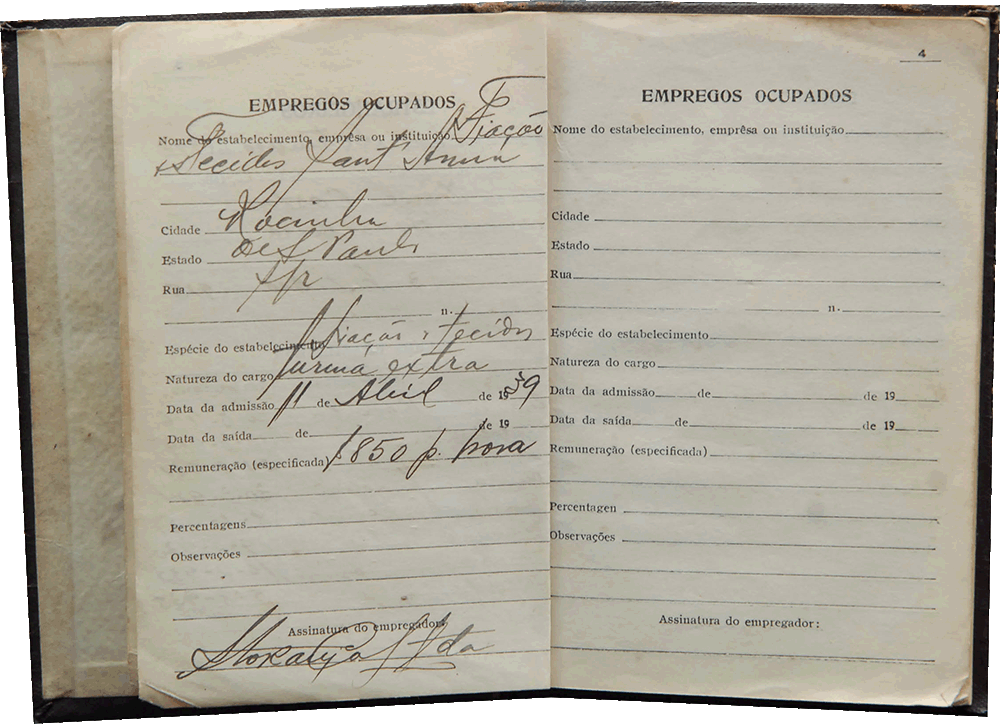 EMPREGOS OCUPADOS
Nome do estabelecimento, emprêsa ou instituição Fiação
e Tecidos Sant'Anna
Cidade Rocinha
Estado de S. Paulo
Rua
n.
Espécie do estabelecimento Fiação e tecidos
Natureza do cargo turma extra
Data da admissão 11 de Abril de 1939
Data da saída de de 19
Remuneração (especificada) 1.850 p. hora
Percentagens
Observações
Assinatura do empregador:
Ltda
4
EMPREGOS OCUPADOS
Nome do estabelecimento, emprêsa ou instituição
Cidade
Estado
Rua
n.
Espécie do estabelecimento
Natureza do cargo
Data da admissão de de 19
Data da saída de de 19
Remuneração (especificada)
Percentagen
Observações
Assinatura do empregador: